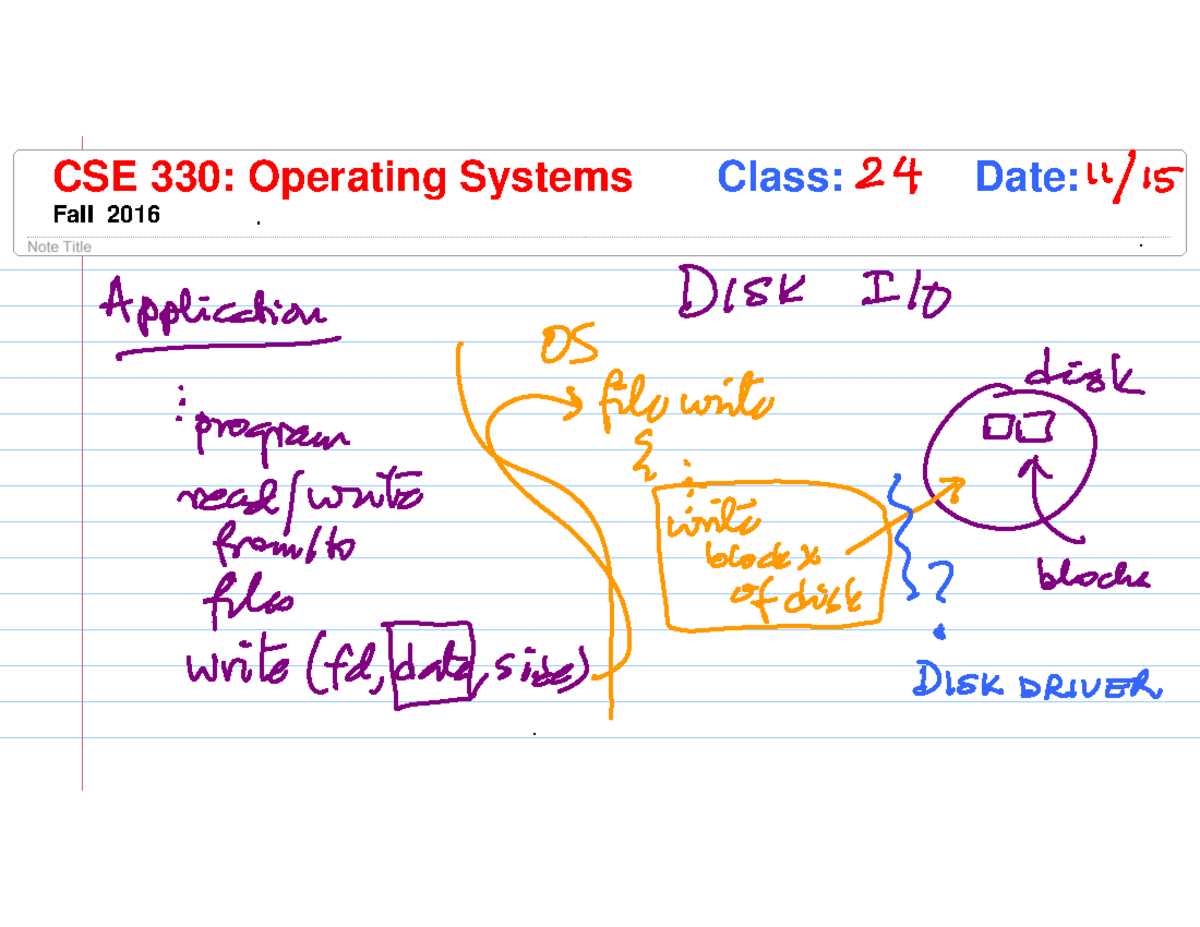 CSE 330: Operating Systems Class: 24 Date: 11/15
Fall 2016
Note Title
DISK I/O
Application
OS
disk
file write
: program
{ :
read/write
write
from/to
block x
of disk
?
blocks
files
write (fd, data, size)
DISK DRIVER